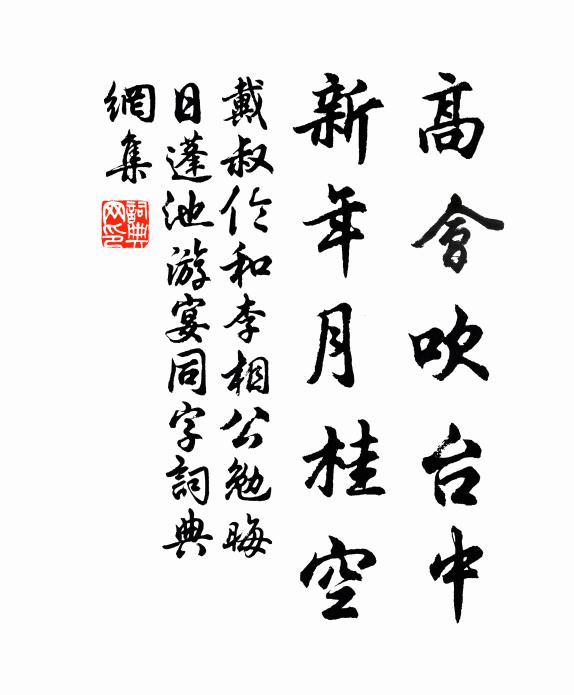 高會吹台中
新年月桂空
戴叔伦和李相公勉晦
日蓬池游宴同字詞典
網集
詞典
网印